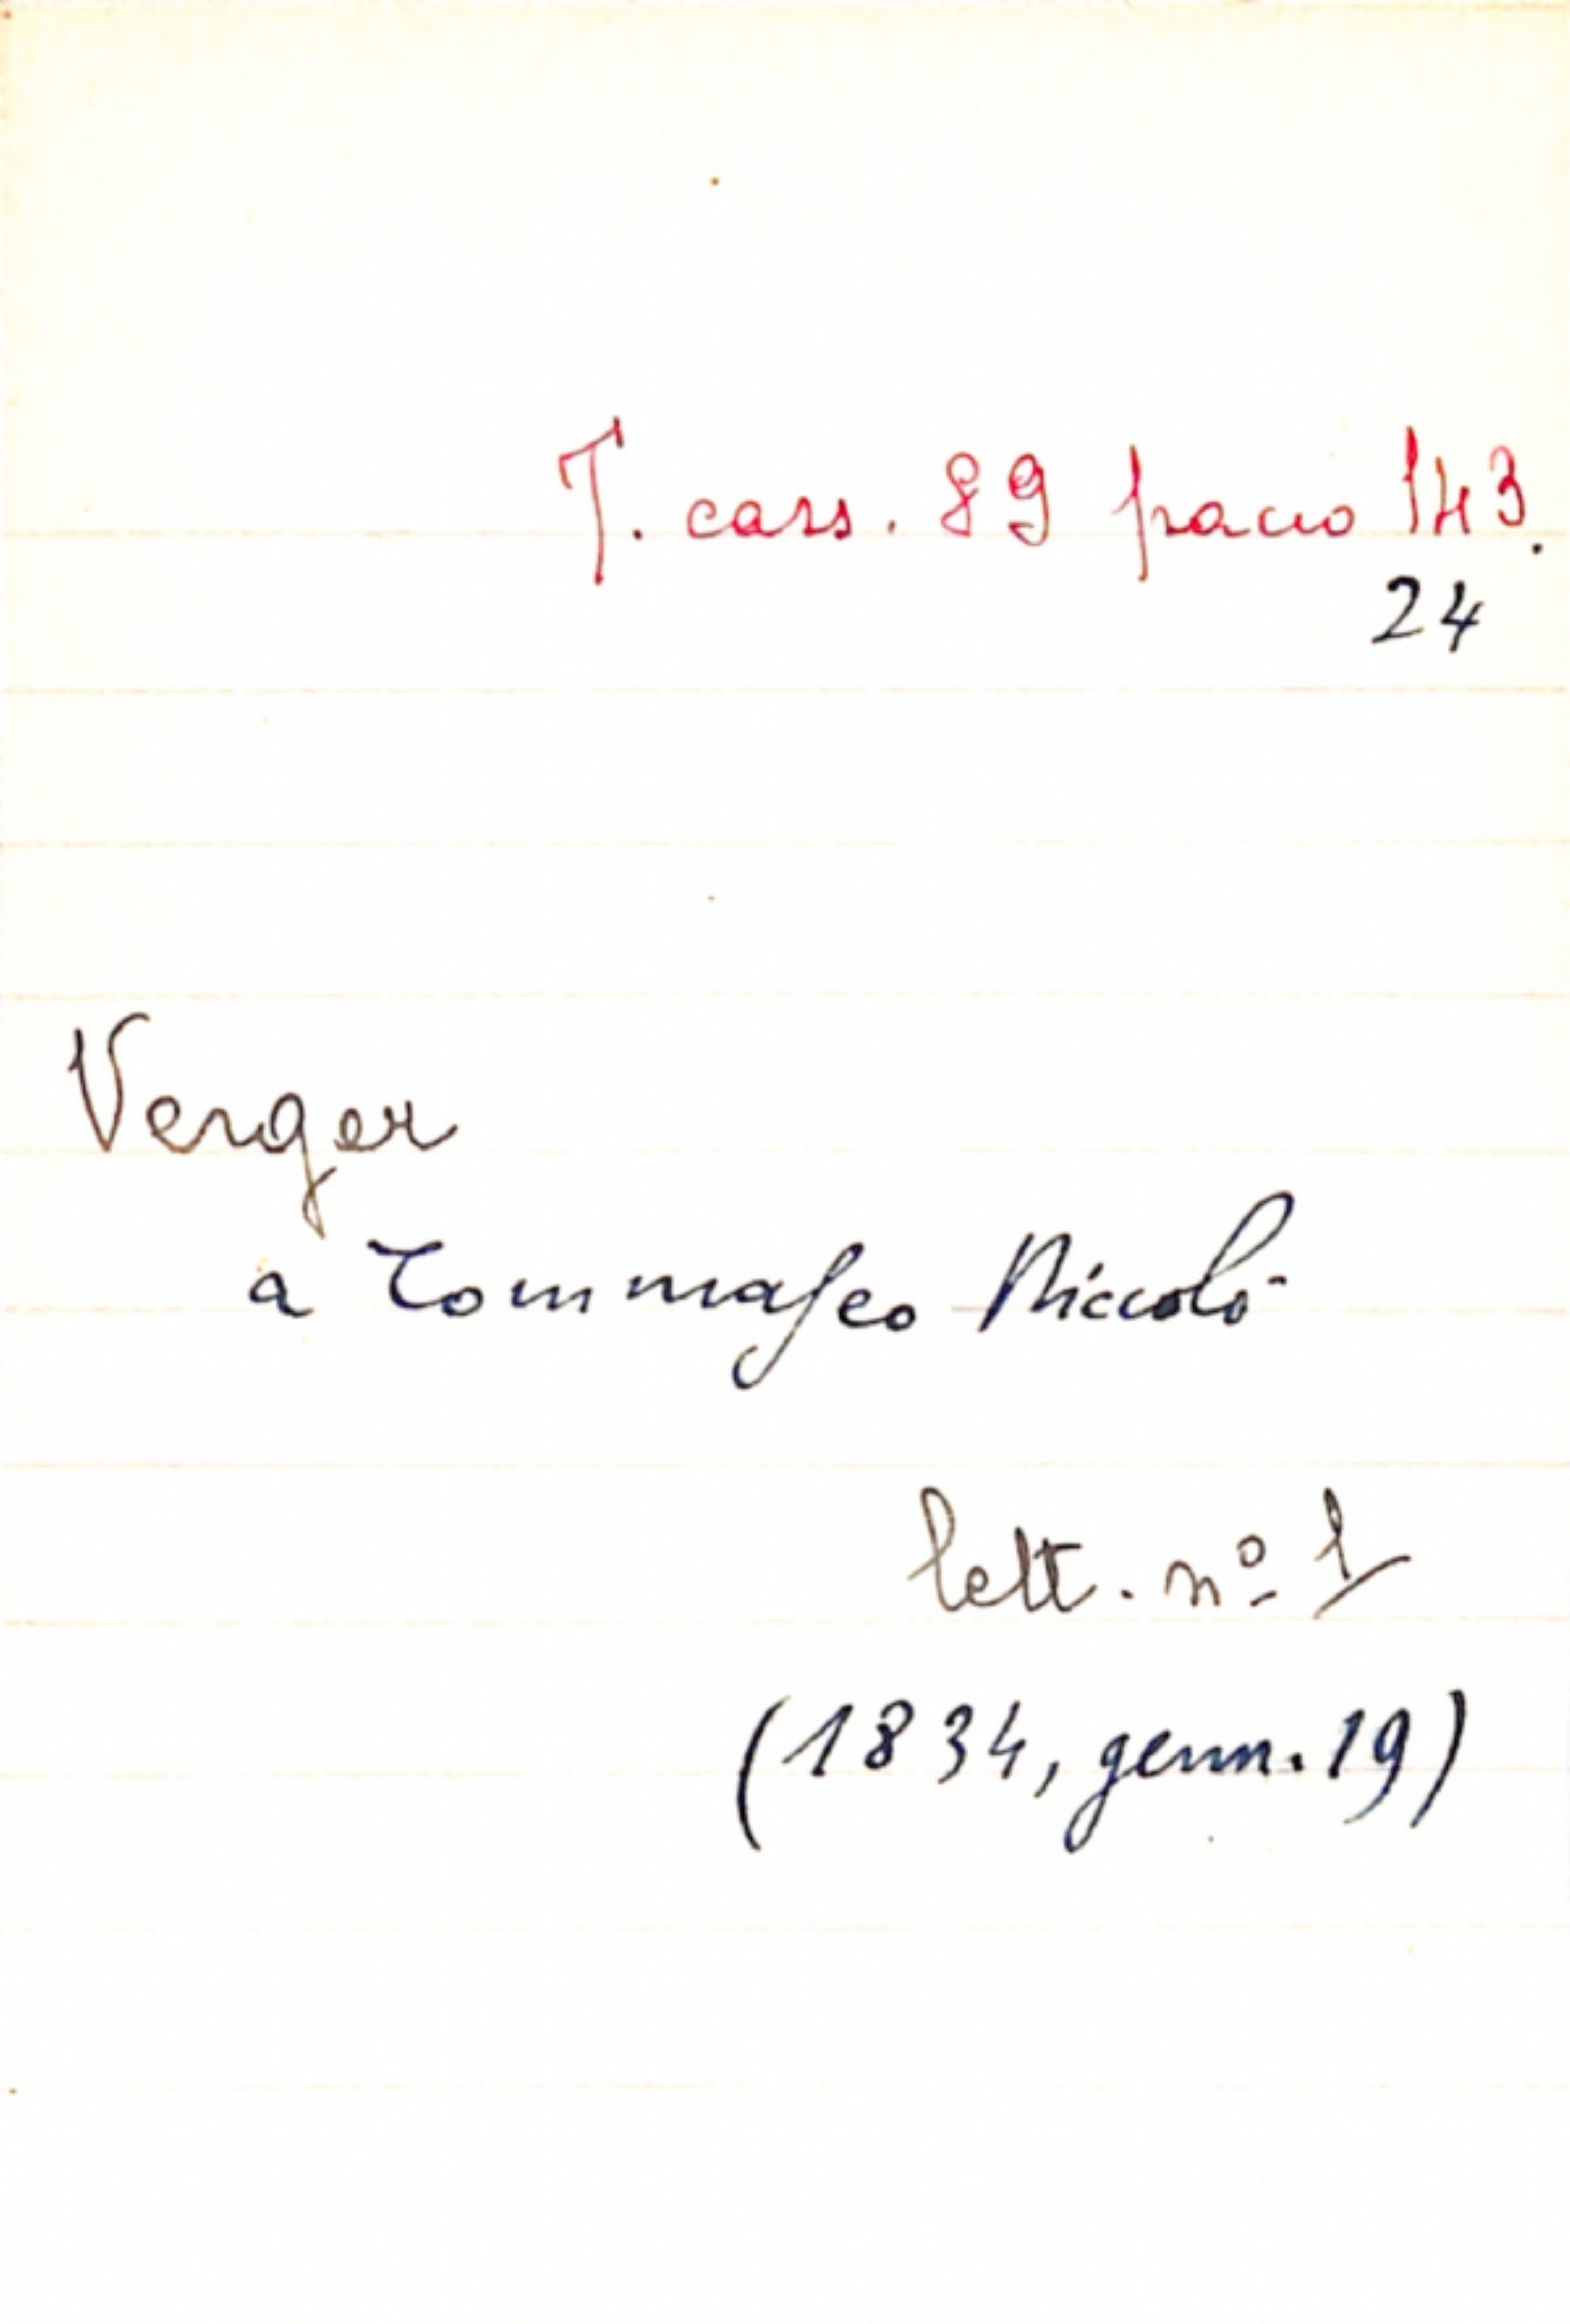 T. cass. 89 pacco 143.
24
Verger
a Tommaseo Niccolò
lett. nº 1
(1834, genn. 19)